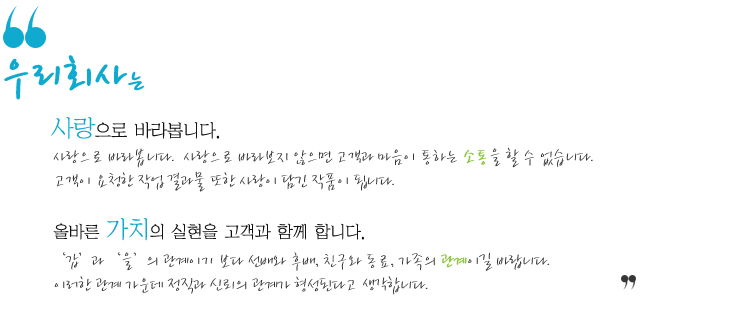 우리회사는
사랑으로 바라봅니다.
사랑으로 바라봅니다. 사랑으로 바라보지 않으면 고객과 마음이 통하는 소통을 할 수 없습니다.
고객이 요청한 작업 결과물 또한 사랑이 담긴 작품이 됩니다.
올바른 가치의 실현을 고객과 함께 합니다.
‘갑’ 과 ‘을’ 의 관계이기 보다 선배와 후배, 친구와 동료, 가족의 관계이길 바랍니다.
이러한 관계 가운데 정직과 신뢰의 관계가 형성된다고 생각합니다.